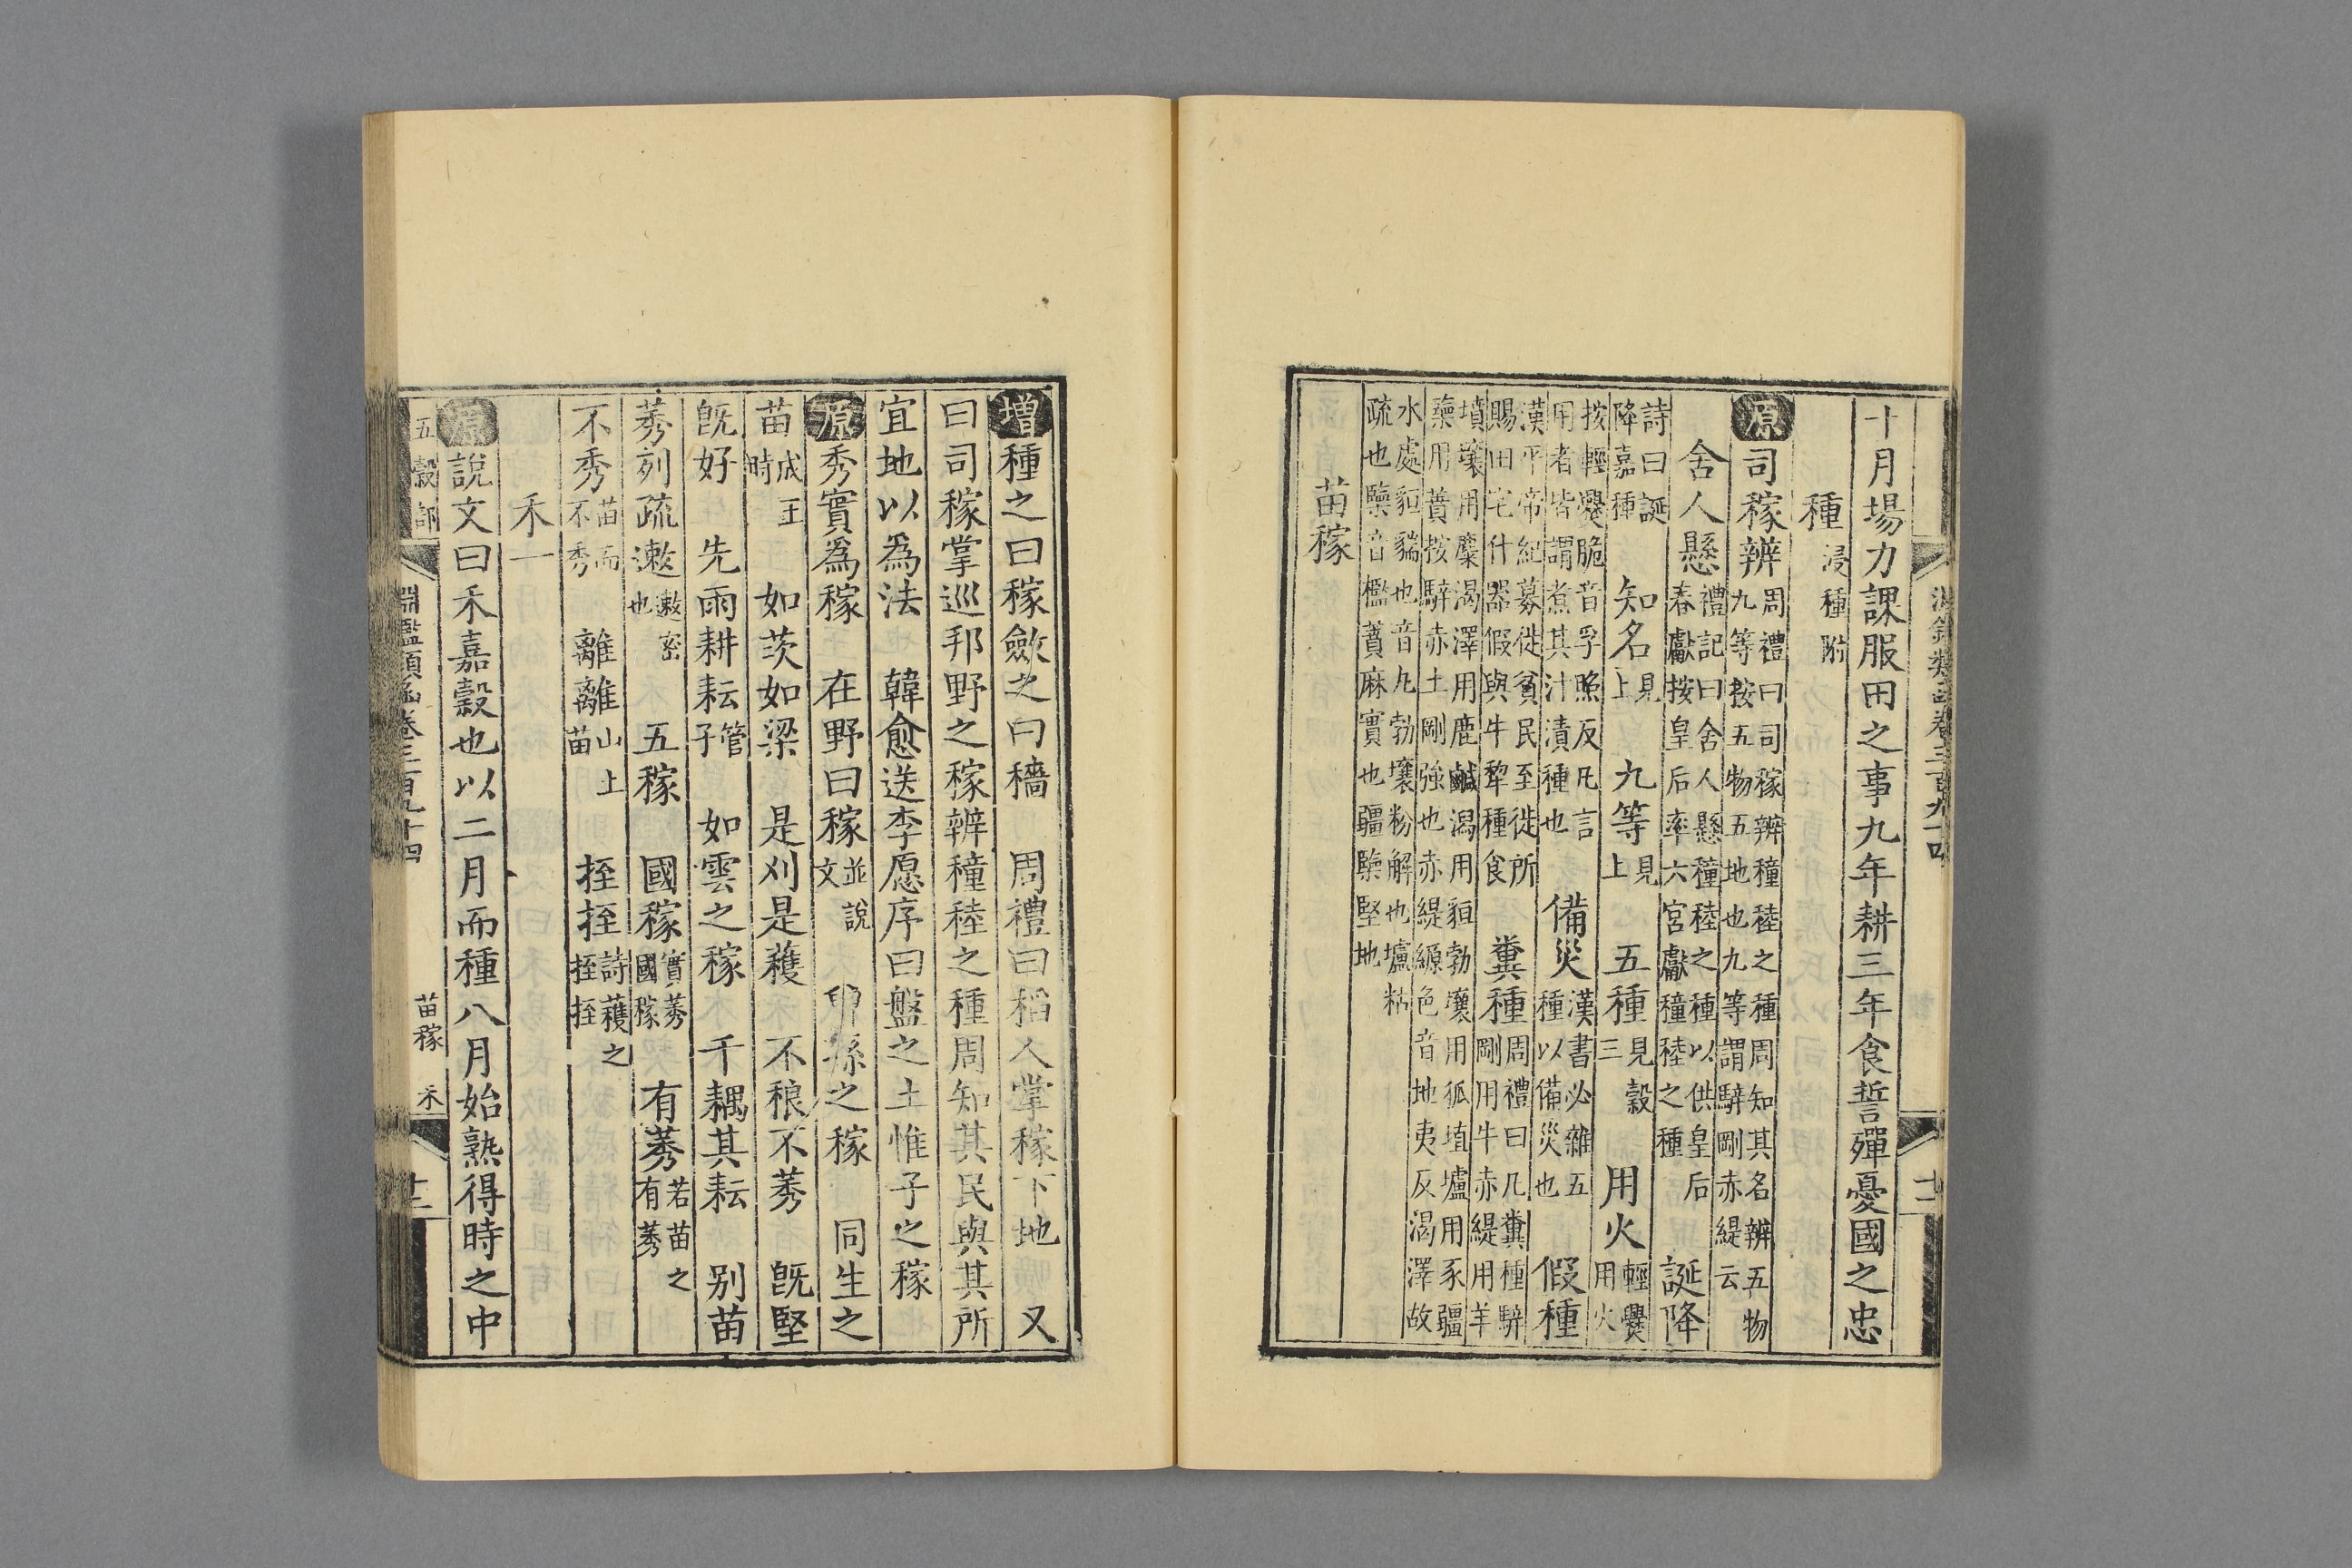 十月場力課服田之事九年耕三年食誓殫憂國之忠
種 浸種附
原 司稼辨 周禮曰司稼辨穜稑之種周知其名辨五物
九等按五物五地也九等謂騂剛赤緹云
舍人懸 禮記曰舍人懸穜稑之種以供皇后
春獻按皇后率六宮獻穜稑之種 誕降
詩曰誕
降嘉種 知名 見上 九等 見上 五種 見穀三 用火 輕㸑用火
按輕㸑脆音孚照反凡言
用者皆謂煮其汁漬種也 備災 漢書必雜五
種以備災也 假種
漢平帝紀募徙貧民至徙所
賜田宅什器假與牛犂種食 糞種 周禮曰凡糞種騂
剛用牛赤緹用羊
墳壤用麋渴澤用鹿鹹潟用貆勃壤用狐埴壚用豕疆
㯺用蕡按騂赤土剛強也赤緹縓色音地夷反渴澤故
水處貆貒也音丸勃壤粉解也壚粘
疏也㯺音檻蕡麻實也疆㯺堅地
苗稼
增 種之曰稼斂之曰穡 周禮曰稻人掌稼下地 又
曰司稼掌巡邦野之稼辨穜稑之種周知其民與其所
宜地以為法 韓愈送李愿序曰盤之土惟子之稼
原 秀實為稼 在野曰稼 並說文 之稼 同生之
苗 成王時 如茨如梁 是刈是穫 不稂不莠 既堅
既好 先雨耕耘 管子 如雲之稼 千耦其耘 別苗
莠列疏遬 遬密也 五稼 國稼 實莠國稼 有莠 若苗之有莠
不秀 苗而不秀 離離 山上苗 挃挃 詩穫之挃挃
禾一
原 說文曰禾嘉穀也以二月而種八月始熟得時之中
五穀部 淵鑑類函卷三百九十四 苗稼 禾